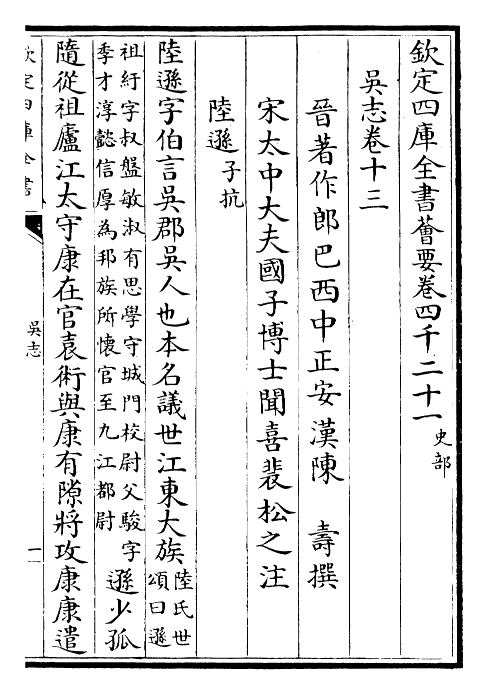 欽定四庫全書薈要卷四千二十一 史部
吳志卷十三
晉著作郎巴西中正安漢陳 壽撰
宋太中大夫國子博士聞喜裴松之注
陸遜子抗
陸遜字伯言吳郡吳人也本名議世江東大族陸氏世頌曰遜
祖紆字叔盤敏淑有思學守城門校尉父駿字季才淳懿信厚為邦族所懷官至九江都尉遜少孤
隨從祖廬江太守康在官袁術與康有隙將攻康康遣
欽定四庫全書
吳志
一